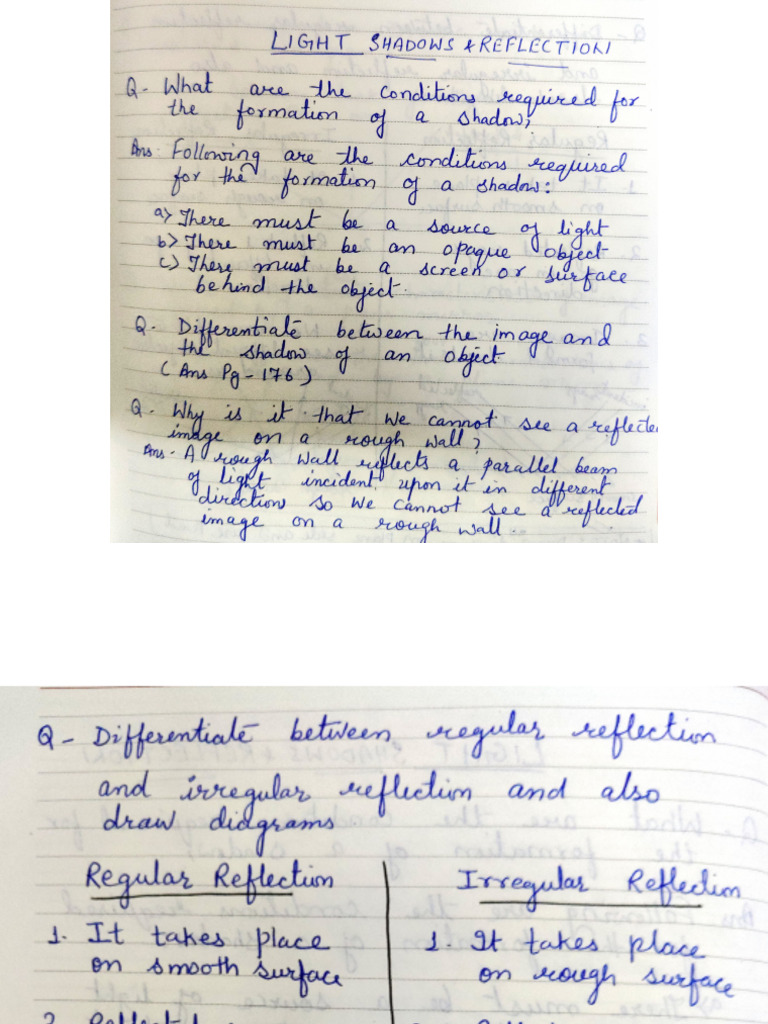 LIGHT SHADOWS & REFLECTION
Q- What are the conditions required for
the formation of a shadow;
Ans Following are the conditions required
for the formation of a shadow:
a) There must be a source of light
b) There must be an opaque object
c) There must be a screen or surface
behind the object.
Q. Differentiate between the image and
the shadow of an object
(Ans Pg - 176)
Q. Why is it that we cannot see a reflecte
image on a rough wall?
Ans- A rough wall reflects a parallel beam
of light incident upon it in different
direction so we cannot see a reflected
image on a rough wall.
Q- Differentiate between regular reflection
and irregular reflection and also
draw diagrams
Regular Reflection Irregular Reflection
1. It takes place 1. It takes place
on smooth surface on rough surface